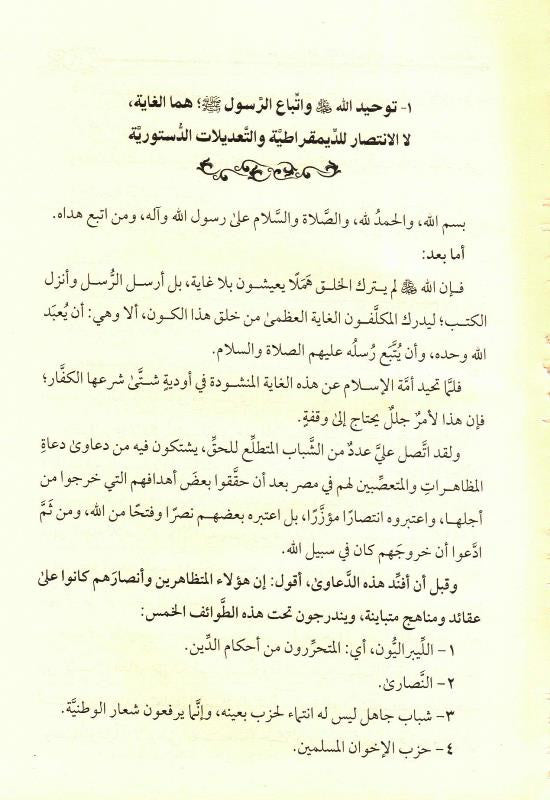 ١- توحيد الله ﷻ واتِّباع الرَّسول ﷺ؛ هما الغاية،
لا الانتصار للدِّيمقراطيَّة والتَّعديلات الدُّستوريَّة
بسم الله، والحمدُ لله، والصَّلاة والسَّلام علىٰ رسول الله وآله، ومن اتبع هداه.
أما بعد:
فـإن الله ﷻ لم يـترك الخلـق هَمَلًا يعيشـون بـلا غاية، بل أرسـل الرُّسـل وأنزل
الكتـب؛ ليدرك المكلَّفـون الغاية العظمىٰ من خلق هذا الكون، ألا وهي: أن يُعبَد
الله وحده، وأن يُتَّبَع رُسلُه عليهم الصلاة والسلام.
فلمَّا تحيد أمَّة الإسـلام عن هذه الغاية المنشـودة في أوديةٍ شـتَّىٰ شرعها الكفَّار؛
فإن هذا لأمرٌ جللٌ يحتاج إلىٰ وقفةٍ.
ولقد اتَّصل عليَّ عددٌ من الشَّباب المتطلِّع للحقِّ، يشتكون فيه من دعاوىٰ دعاةِ
المظاهـراتِ والمتعصِّبين لهم في مصر بعد أن حقَّقوا بعضَ أهدافهم التي خرجوا من
أجلهـا، واعتبروه انتصارًا مؤزَّرًا، بل اعتبره بعضهـم نصرًا وفتحًا من الله، ومن ثَمَّ
ادَّعوا أن خروجَهم كان في سبيل الله.
وقبل أن أفنِّد هذه الدَّعاوىٰ، أقول: إن هؤلاء المتظاهرين وأنصارَهم كانوا علىٰ
عقائد ومناهج متباينة، ويندرجون تحت هذه الطَّوائف الخمس:
١- اللِّيبراليُّون، أي: المتحرِّرون من أحكام الدِّين.
٢- النَّصارىٰ.
٣- شباب جاهل ليس له انتماء لحزب بعينه، وإنَّما يرفعون شعار الوطنيَّة.
٤- حزب الإخوان المسلمين.